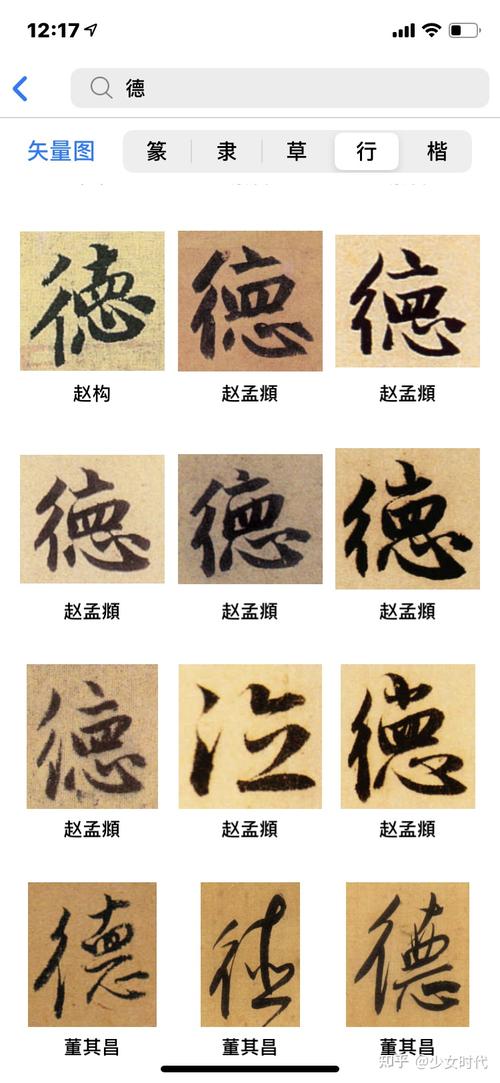 12:17
德
矢量图 篆 隶 草 行 楷
德 德 德
赵构 赵孟頫 赵孟頫
德 德 德
赵孟頫 赵孟頫 赵孟頫
德 德
赵孟頫 赵孟頫 赵孟頫
德 德 德
董其昌 董其昌 董其昌
知乎 @少女时代